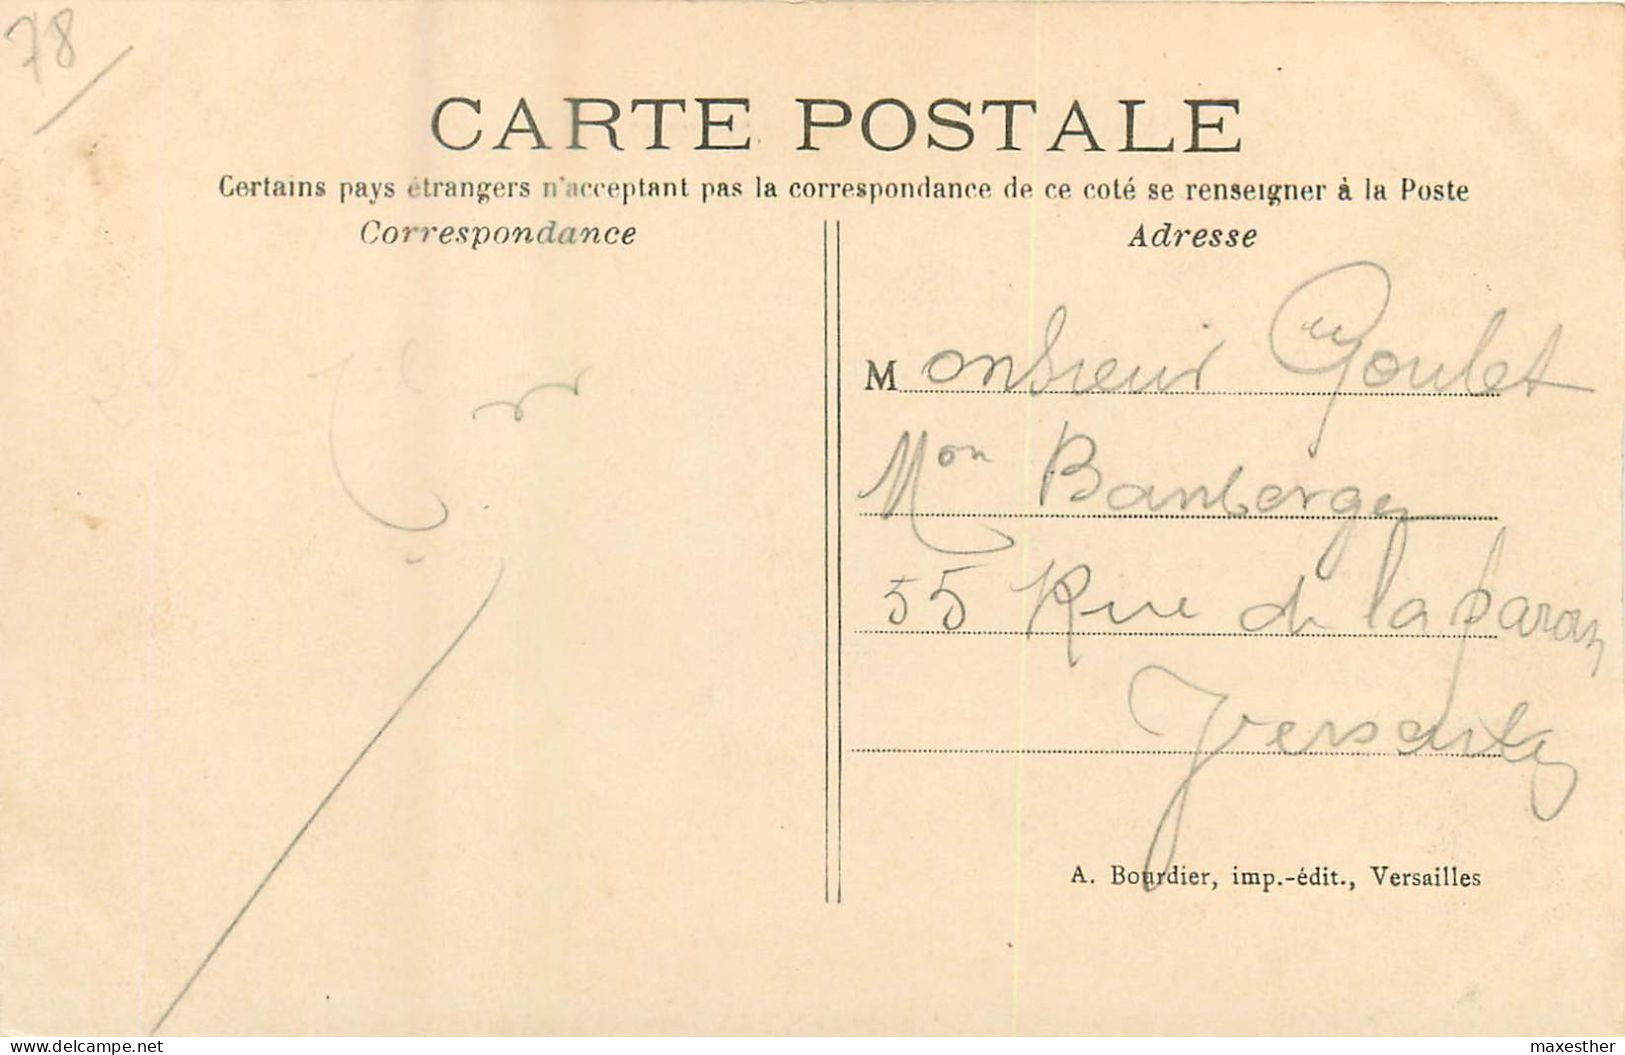 78
CARTE POSTALE
Certains pays étrangers n'acceptant pas la correspondance de ce coté se renseigner à la Poste
Correspondance
Adresse
Monsieur Goulet
Mon
55 Rue de la
Versailles
A. Bourdier, imp.-édit., Versailles
www.delcampe.net
maxesther